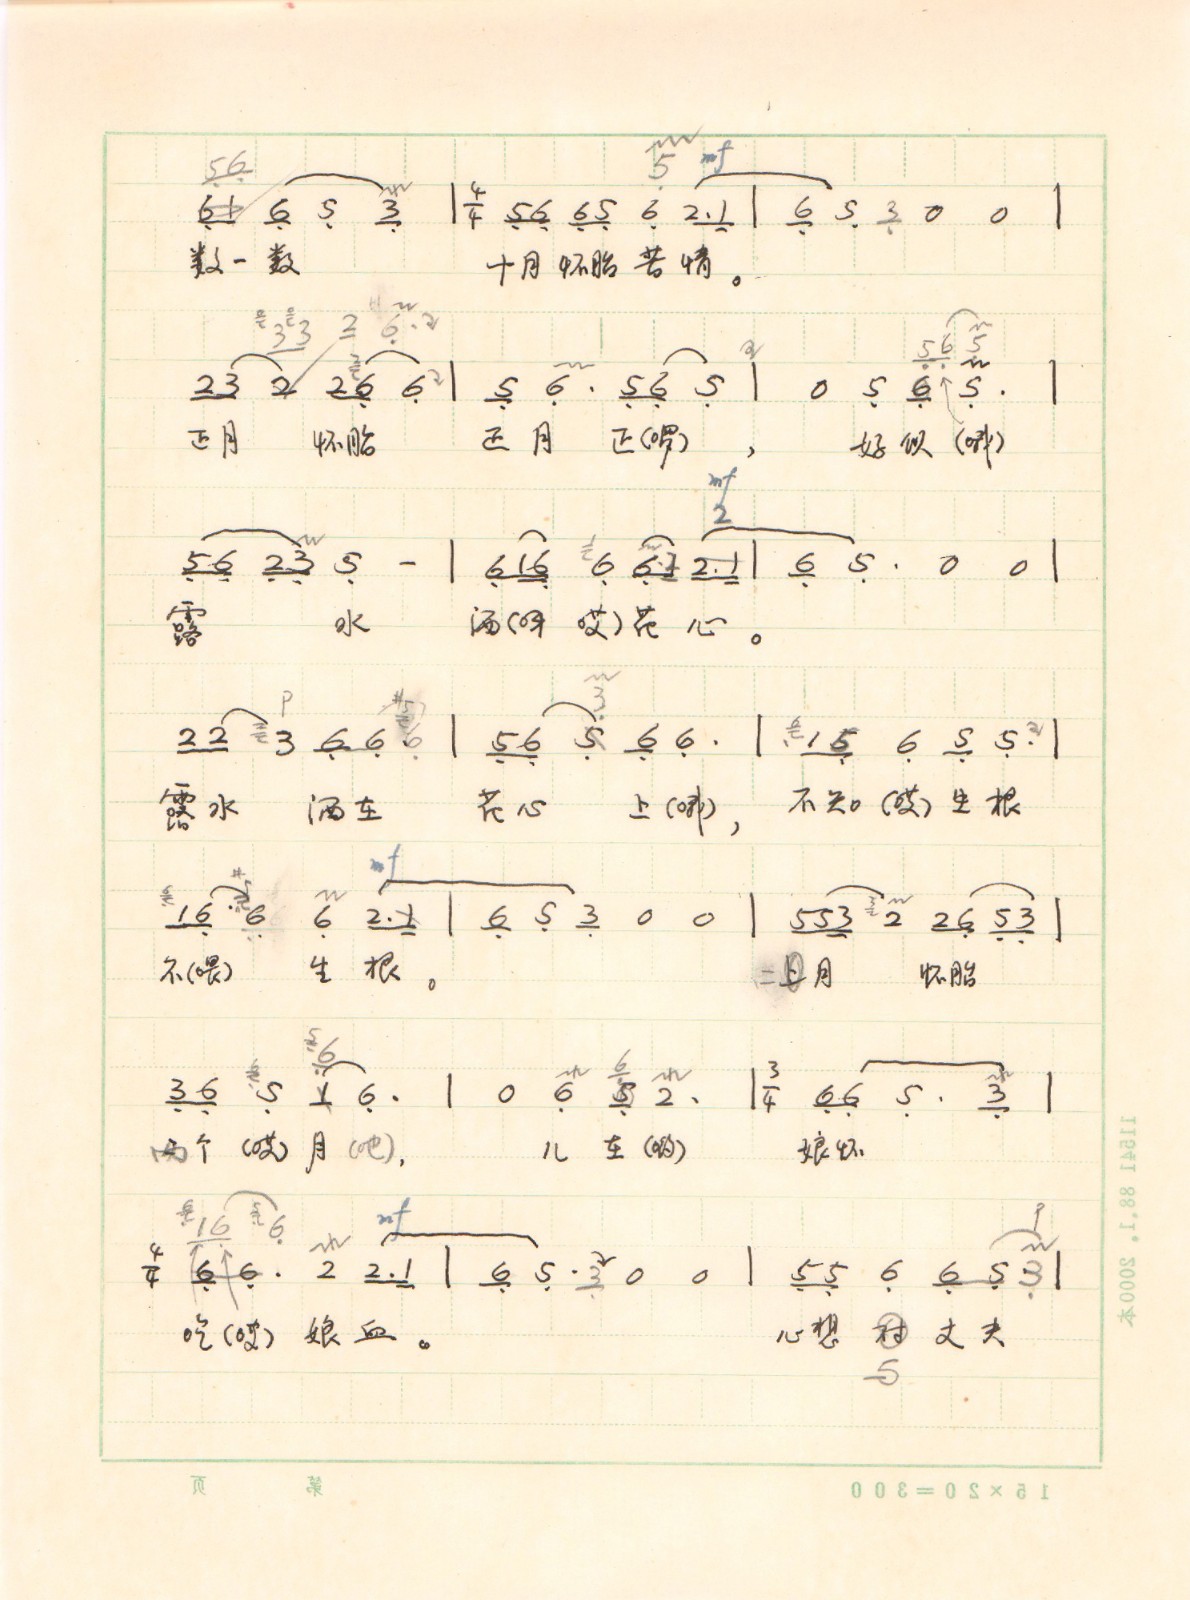 56
61 6 5 3 | 4/4 56 65 6 2·1 | 6 5 3 0 0 |
5 mf
数一数 十月怀胎苦情。
33 2 6·
23 2 26 6 | 5 6· 56 5 | 0 5 6 5· |
56 5
正月 怀胎 正月 正(啰), 好似(哪)
mf
2
56 23 5 - | 616 6 6·1 2·1 | 6 5· 0 0 |
露 水 洒(呀 哎)花 心。
P 3
22 3 66 | 56 5 66· | 15 6 5 5· |
露水 洒在 花心 上(哪), 不知(哎)生根
mf
16 6 6 2·1 | 6 5 3 0 0 | 553 2 26 53 |
不(喂) 生根。 二月 怀胎
6 6
36 5 1 6· | 0 6 5 2· | 3/4 66 5· 3 |
两个(哎)月(吧), 儿在(哟) 娘怀
16 6 mf P
4/4 6 6· 2 2·1 | 6 5· 3 0 0 | 55 6 6 5 3 |
吃(哎)娘血。 心想 村 丈夫
5
11541 88.1。2000本
第 页
15×20=300